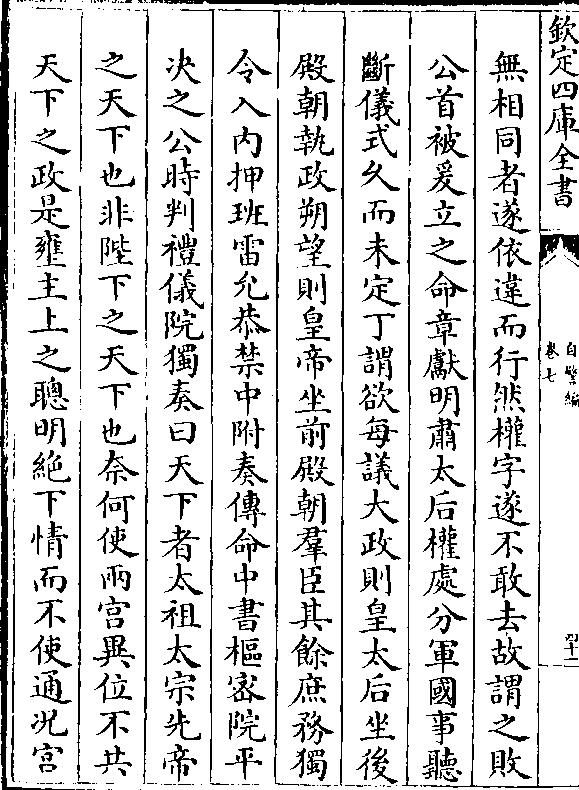 欽定四庫全書
自警編
卷七
無相同者遂依違而行然權字遂不敢去故謂之敗
公首被爰立之命章獻明肅太后權處分軍國事聽
斷儀式久而未定丁謂欲每議大政則皇太后坐後
殿朝執政朔望則皇帝坐前殿朝羣臣其餘庶務獨
令入內押班雷允恭禁中附奏傳命中書樞密院平
決之公時判禮儀院獨奏曰天下者太祖太宗先帝
之天下也非陛下之天下也奈何使兩宫異位不共
天下之政是壅主上之聰明絶下情而不使通况宫